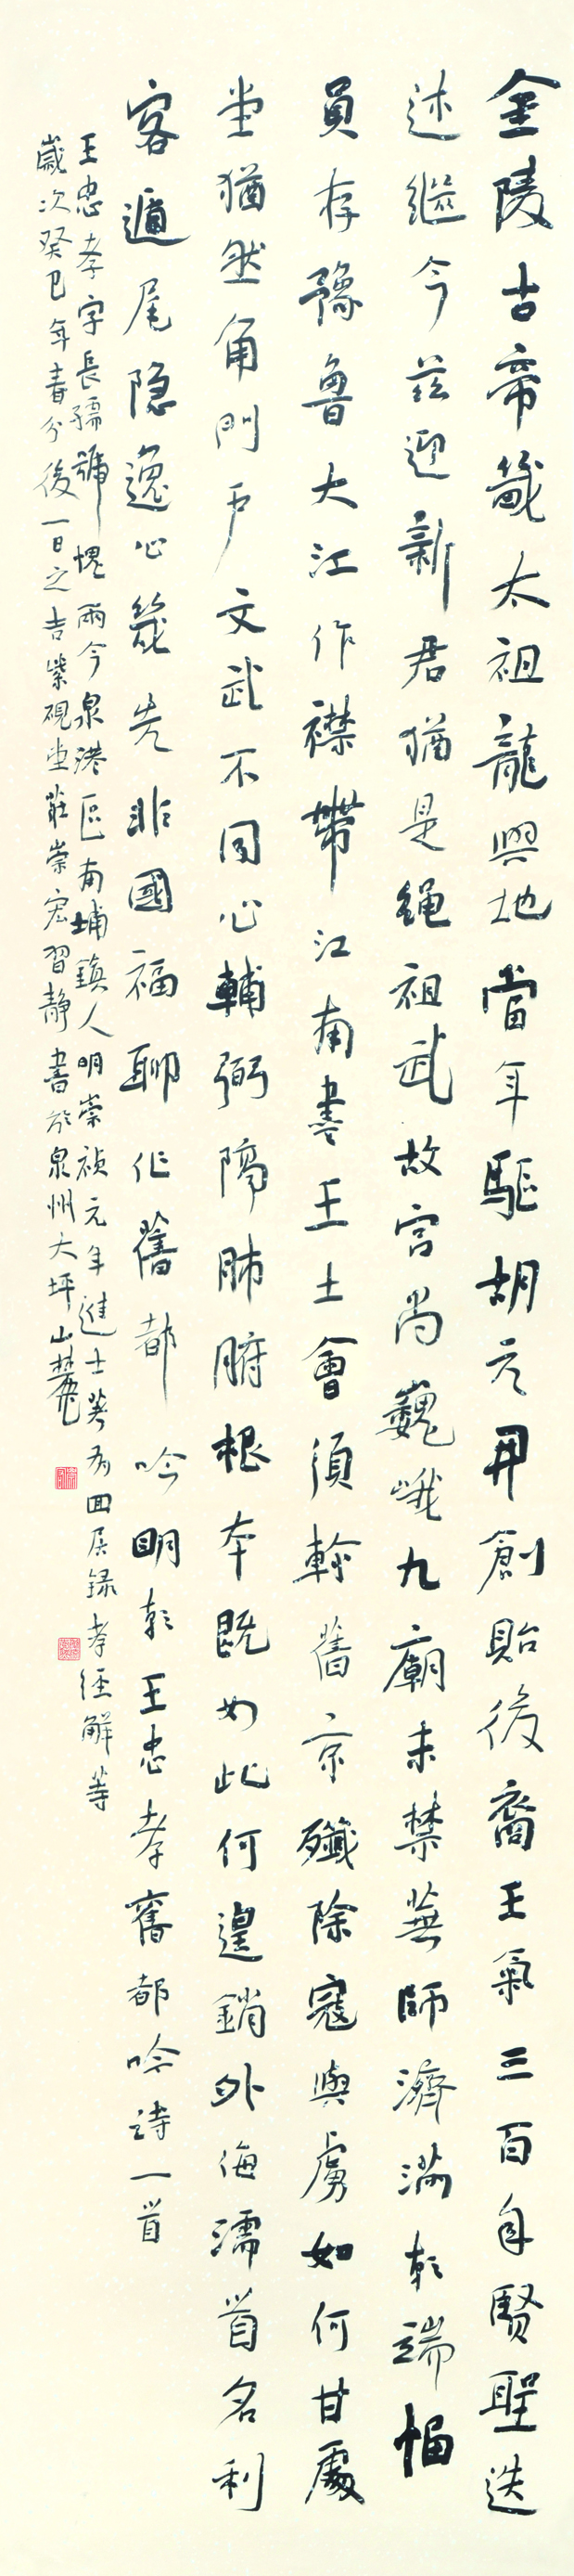 金陵古帝畿太祖龍興地當年驅胡元開創貽後裔王氣三百年賢聖迭
述繼今茲迎新君猶是繩祖武故宮尚巍峨九廟未禁蕪師濟滿朝端幅
員存豫魯大江作襟帶江南盡王土會須幹舊京殲除寇與虜如何甘處
堂猶然角門戶文武不同心輔弼隔肺腑根本既如此何遑銷外侮濡首名利
客遁尾隐逸心幾先非國福聊作舊都吟明朝王忠孝舊都吟詩一首
王忠孝字長孺號愧兩今泉港區南埔鎮人明崇禎元年進士著有四居録孝經解等
歲次癸巳年春分後一日之吉紫硯堂莊崇宏習靜書於泉州大坪山麓